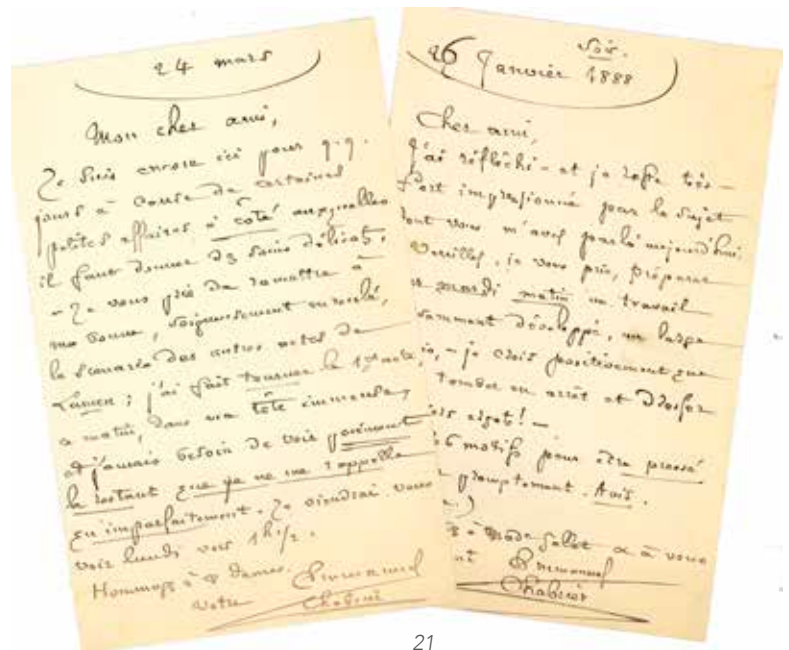 24 mars
Mon cher ami,
Je suis encore ici pour q.q.
jours à cause de certaines
petites affaires à côté auxquelles
il faut donner des soins délicats,
- Je vous prie de remettre à
ma bonne, soigneusement enroulé,
le scenario des autres actes de
; j'ai fait tourner le 1er acte,
ce matin, dans ma tête immense,
et j'aurais besoin de voir
le restant que je ne me rappelle
qu'imparfaitement. Je viendrai vous
voir lundi vers 1h 1/2.
Hommages à ces dames.
Votre Emmanuel
Chabrier
Soir.
26 Janvier 1888
Cher ami,
J'ai réfléchi - et je reste très-
fort impressionné par le sujet
dont vous m'avez parlé aujourd'hui.
Veuillez, je vous prie, préparer
mardi matin un travail
samment développé, un large
io, - je crois positivement que
tomber en arrêt et
!
6 motifs pour être pressé
promptement. Avis.
à Made Gallet & à vous
Emmanuel
Chabrier
21